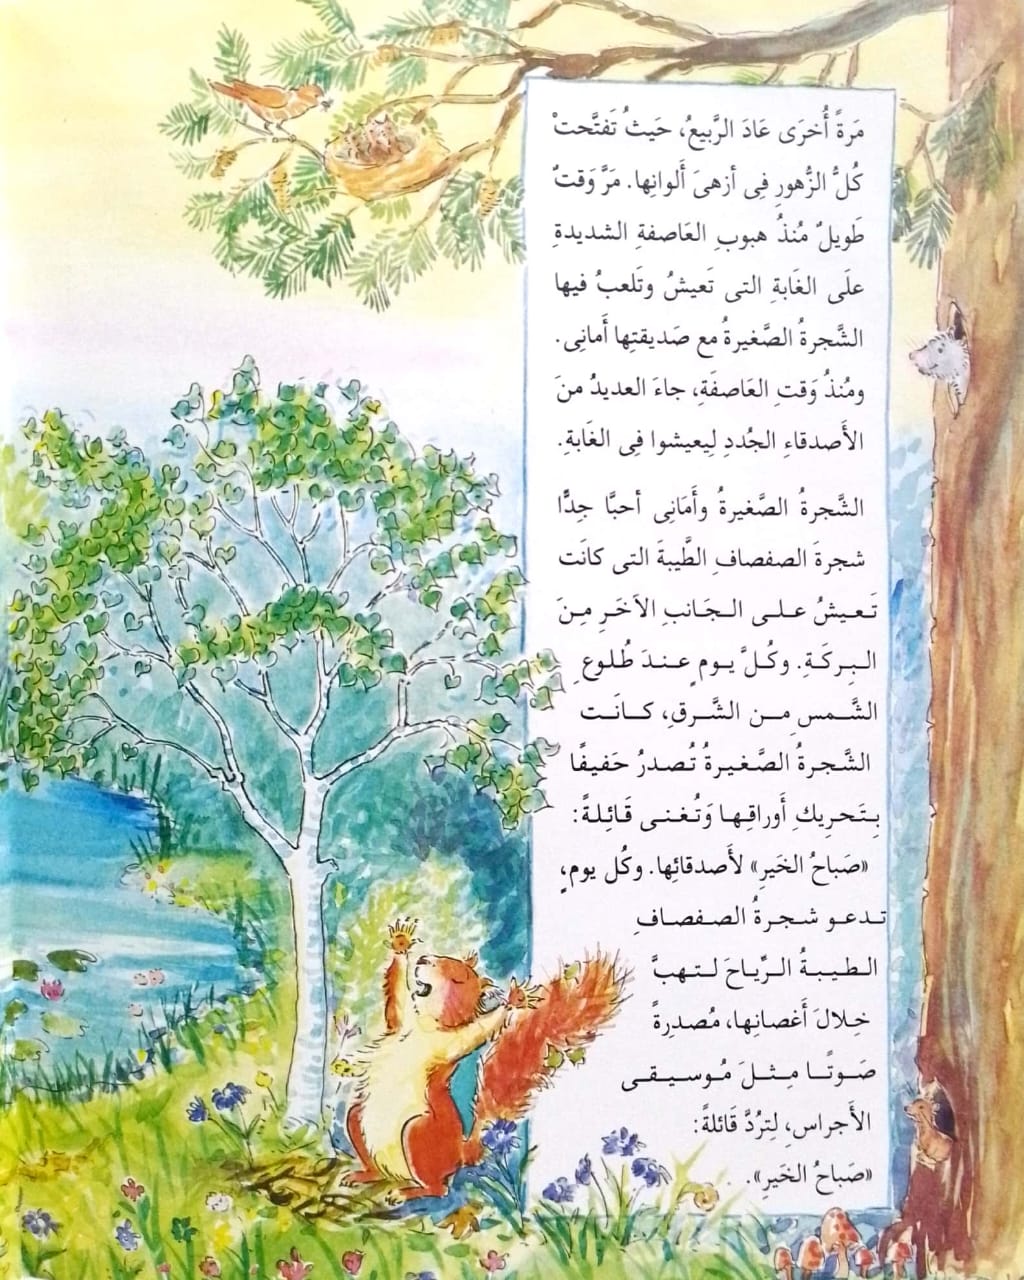 مَرةً أُخرَى عَادَ الرَّبيعُ، حَيثُ تَفتَّحتْ
كُلُّ الزُّهورِ فِى أزهىَ أَلوانِها. مَرَّ وَقتٌ
طَويلٌ مُنذُ هبوبِ العَاصفةِ الشديدةِ
علَى الغَابةِ التى تَعيشُ وتَلعبُ فيها
الشَّجرةُ الصَّغيرةُ مع صَديقتِها أَمانِى.
ومُنذُ وَقتِ العَاصفَةِ، جاءَ العديدُ منَ
الأَصدقاءِ الجُددِ لِيعيشوا فِى الغَابةِ.
الشَّجرةُ الصَّغيرةُ وأَمَانِى أحبَّا جِدًّا
شجرةَ الصفصافِ الطَّيبةَ التى كانَت
تَعيشُ على الجَانبِ الآخَرِ مِنَ
البِركَةِ. وكُلَّ يومٍ عِندَ طُلوعِ
الشَّمسِ مِن الشَّرقِ، كانَت
الشَّجرةُ الصَّغيرةُ تُصدرُ حَفيفًا
بِتَحرِيكِ أَوراقِها وَتُغنى قَائِلةً:
«صَباحُ الخَيرِ» لأَصدقائِها. وكُل يومٍ،
تدعو شجرةُ الصفصافِ
الطيبةُ الرِّياحَ لتهبَّ
خِلالَ أَغصانِها، مُصدِرةً
صَوتًا مِثلَ مُوسيقى
الأَجراسِ، لِتردَّ قَائلةً:
«صَباحُ الخَيرِ».